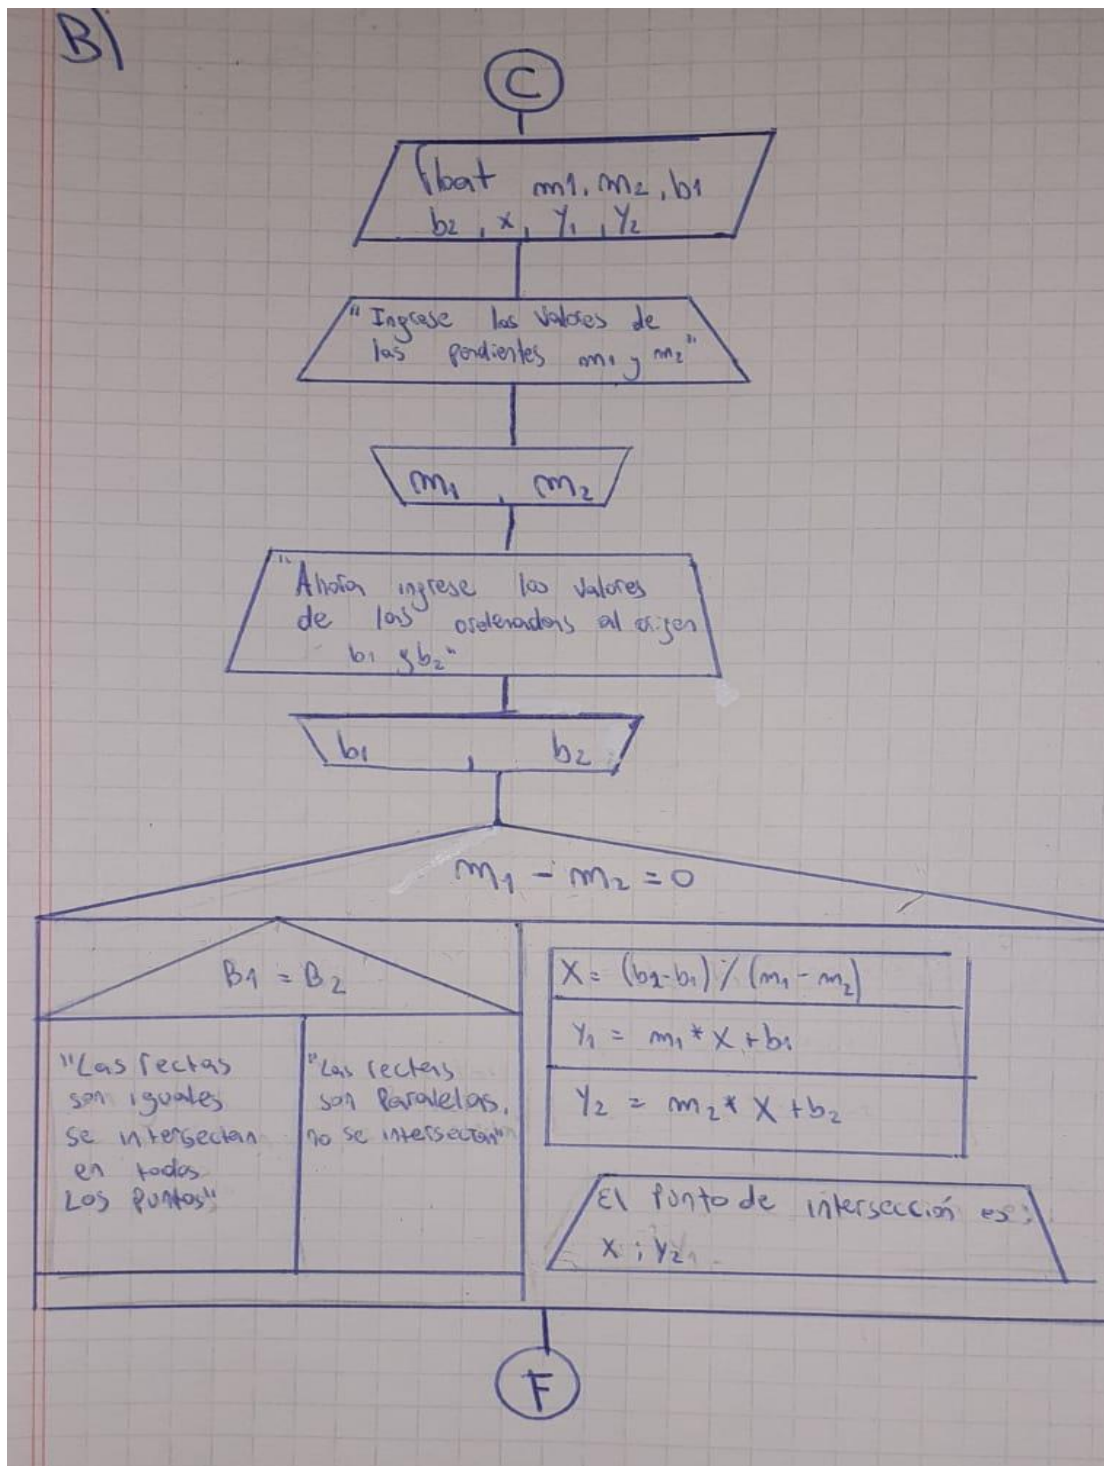 B)
C
float m1, m2, b1
b2, x, y1, y2
"Ingrese los valores de
las pendientes m1 y m2"
m1, m2
"Ahora ingrese los valores
de las ordenadas al origen
b1 y b2"
b1, b2
m1 - m2 = 0
B1 = B2
"Las rectas
son iguales
se intersectan
en todos
Los puntos"
"Las rectas
son Paralelas,
no se intersectan"
X = (b2-b1) / (m1 - m2)
Y1 = m1 * X + b1
Y2 = m2 * X + b2
El Punto de intersección es:
X ; Y2
F